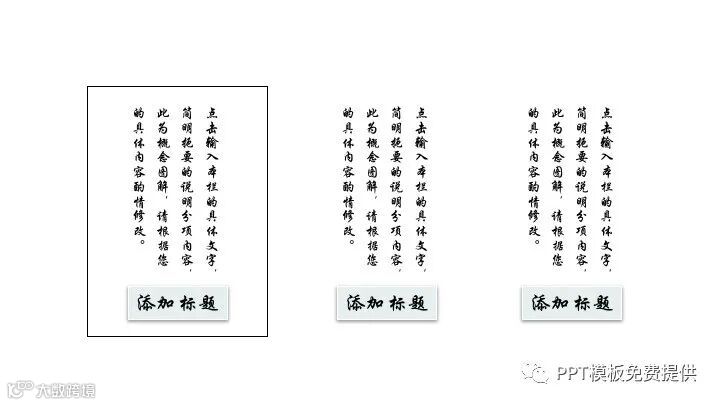 点击输入本栏的具体文字，
简明扼要的说明分项内容，
此为概念图解，请根据您
的具体内容酌情修改。
添加标题
点击输入本栏的具体文字，
简明扼要的说明分项内容，
此为概念图解，请根据您
的具体内容酌情修改。
添加标题
点击输入本栏的具体文字，
简明扼要的说明分项内容，
此为概念图解，请根据您
的具体内容酌情修改。
添加标题
PPT模板免费提供
大数跨境